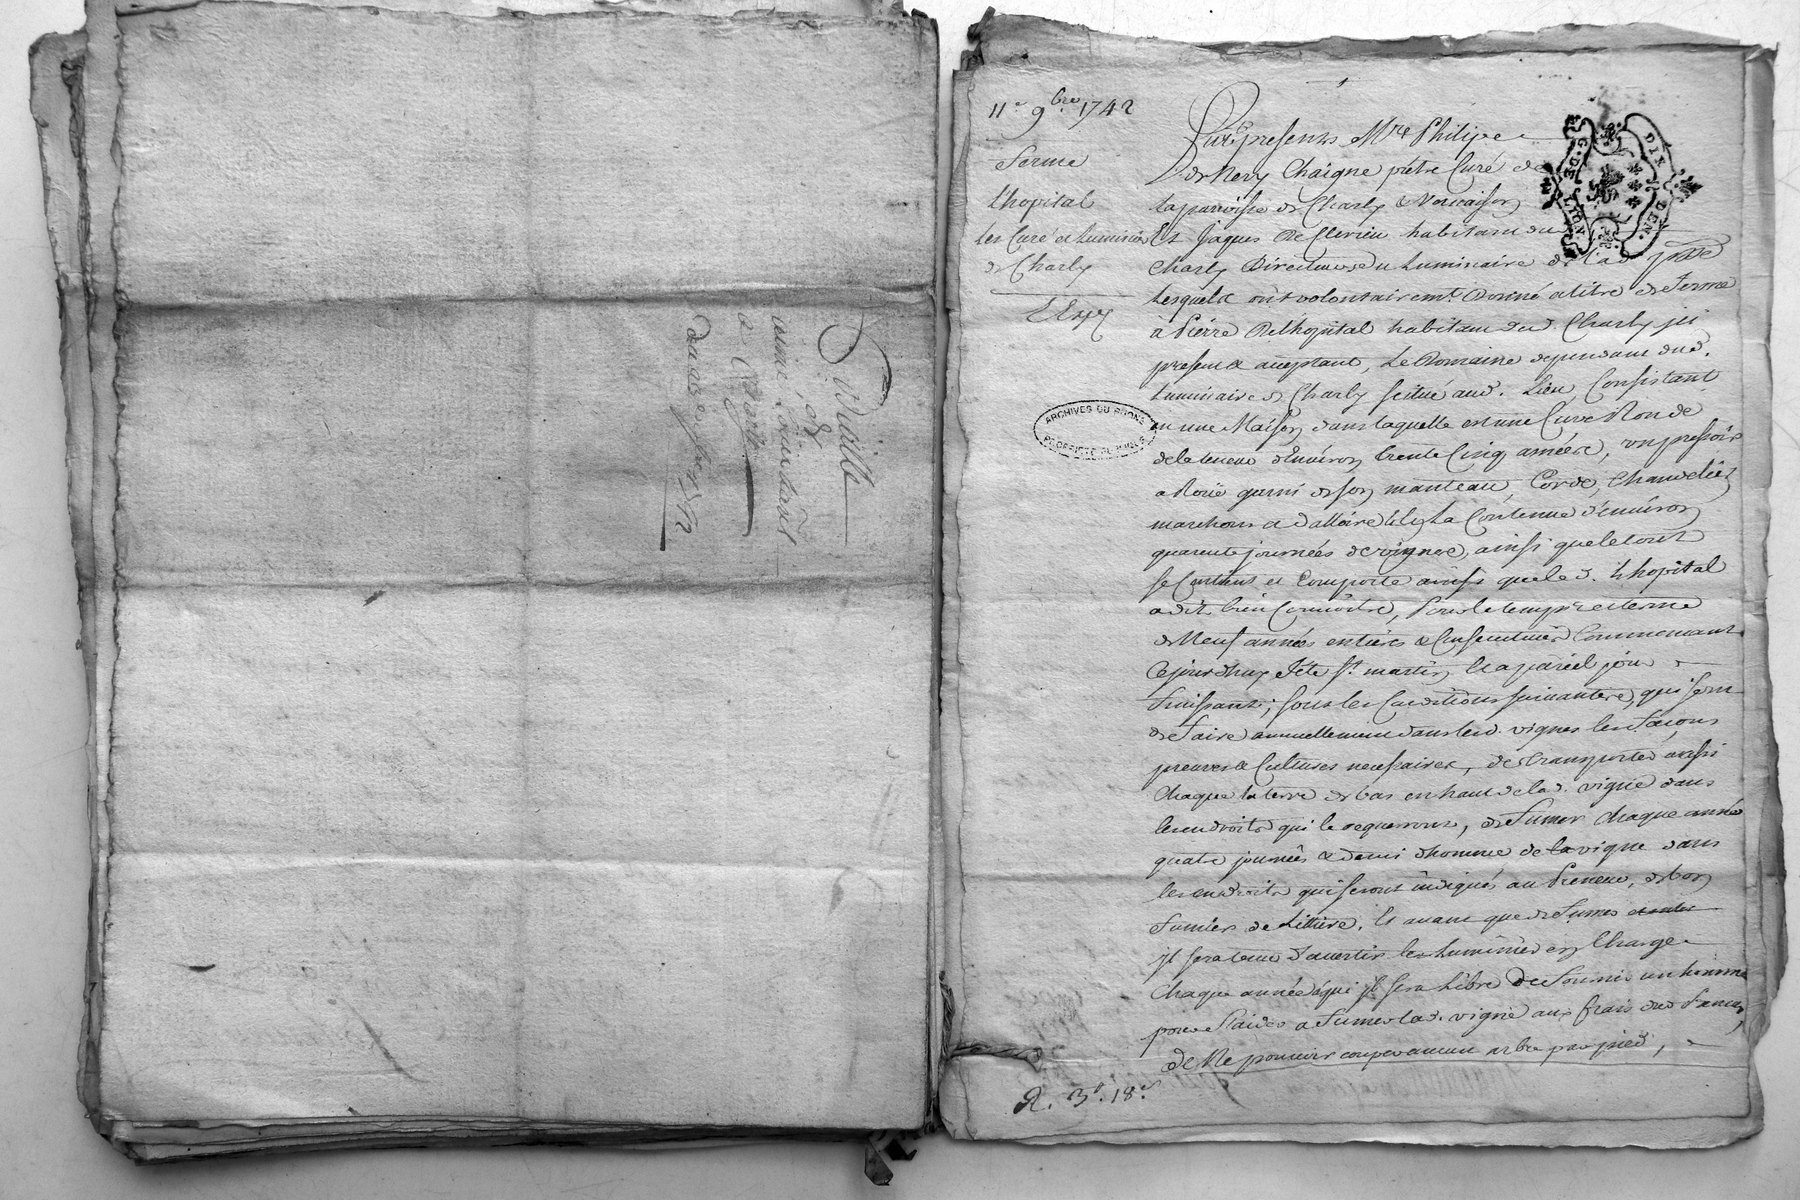 Quitte
de
à Charly
11e 9bre 1742
Ferme
l'hopital
Les Curé et Luminier
de Charly
Exp
Furent presents Mre Philipe
de Nery Chaigne prêtre Curé de
la parroisse de Charly & Vernaison
Et Jaques De Clerieu habitant du
Charly Directeurs du Luminaire de lad. psse
Lesquels ont volontairemt. Donné a titre de Ferme
à Pierre De l'hopital habitant dud. Charly ici
present & acceptant, Le Domaine dependant dud.
Luminaire de Charly scitué aud. Lieu, Consistant
en une Maison dans laquelle est une Cuve Ronde
de la teneur d'Environ trente Cinq anées, un pressoir
a Roüe garni de son manteau, Corde, Chandelier
marchons et Les La Contenue d'environ
quarente journées de vignes, ainsi que le tout
se Contient et Comporte ainsi que le d. Lhopital
a dit bien Connoitre, Pour le temps et terme
de Neuf années entieres & Consecutives Commencant
Cejourdhuy Fête St. martin Et a pareil jour
Finissant; sous les Conditions suivantes, qui sont
de Faire annuellement dans lesd. vignes les Façons
preuves & Cultures necessaires, de transporter aussi
Chaque la terre de bas en haut de lad. vigne dans
les endroits qui le requerront, de Fumer chaque année
quatre journées & demi d'homme de la vigne dans
les endroits qui seront indiqués au Preneur, de bon
Fumier de Littiere, Et avant que de Fumer
il sera tenu d'avertir les Luminiers en Charge
Chaque année à qui il sera Libre De Fournir un homme
pour Aider a Fumer lad. vigne aux frais dud. Preneur,
de Ne pouvoir couper aucun arbre par pied,
R. 3d. 18.
G. DE LYON.
DIX DEN.
ARCHIVES DU RHONE
PROPRIETE PUBLIQUE